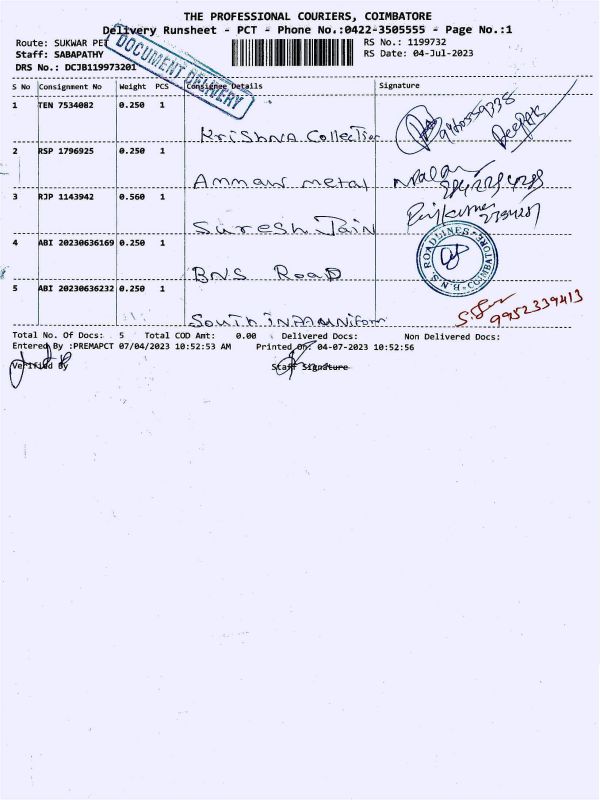 THE PROFESSIONAL COURIERS, COIMBATORE
Delivery Runsheet - PCT - Phone No.:0422-3505555 - Page No.:1
Route: SUKWAR PET
RS No.: 1199732
Staff: SABAPATHY
RS Date: 04-Jul-2023
DRS No.: DCJB119973201
DOCUMENT DELIVERY
S No Consignment No Weight PCS Consignee Details Signature
1 TEN 7534082 0.250 1
Krishna Collection
Deepak
2 RSP 1796925 0.250 1
Amman metal
3 RJP 1143942 0.560 1
Suresh Jain
4 ABI 20230636169 0.250 1
BNS Road
B.N.S. ROADLINES COIMBATORE
5 ABI 20230636232 0.250 1
South
9952339413
Total No. Of Docs: 5 Total COD Amt: 0.00 Delivered Docs: Non Delivered Docs:
Entered By :PREMAPCT 07/04/2023 10:52:53 AM Printed On: 04-07-2023 10:52:56
Verified By Staff Signature